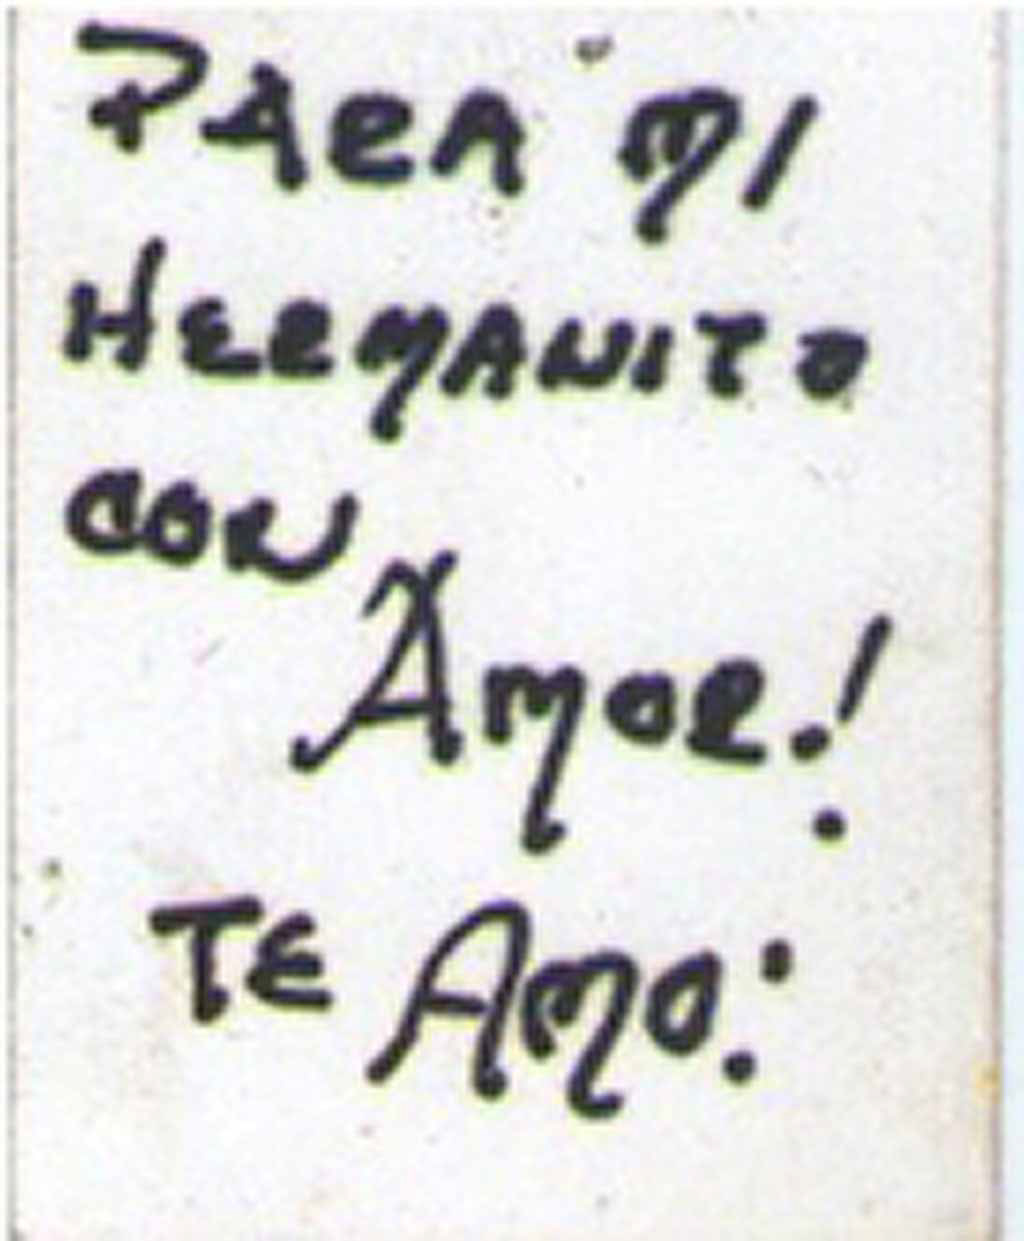 PARA MI
HERMANITO
CON
AMOR.!
TE AMO.